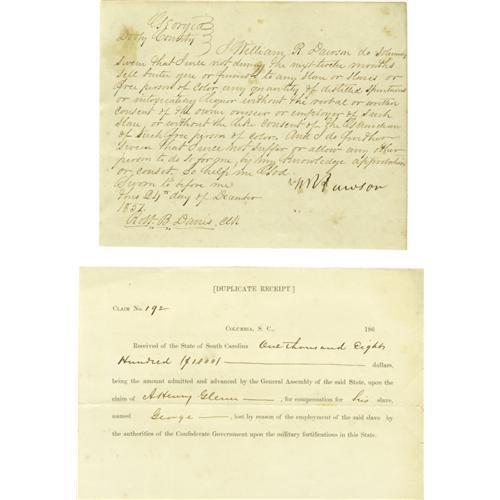 Georgia
Dooly County } I William R. Dawson do solemnly
swear that I will not during the next twelve months
sell barter give or furnish to any slave or slaves or
free person of color any quantity of distilled spirituous
or intoxicating liquor without the verbal or written
consent of the owner overseer or employer of such
slave, or without the like consent of the Guardian
of such free person of color. And I do further
swear that I will not suffer or allow any other
person to do so for me, by my knowledge approbation
or consent. So help me God.
Sworn to before me WR Dawson
this 24th day of December
1857
Robt. B. Davies, Clk
[DUPLICATE RECEIPT.]
CLAIM NO. 192
COLUMBIA, S. C., 186
Received of the State of South Carolina One thousand Eight
Hundred dollars,
being the amount admitted and advanced by the General Assembly of the said State, upon the
claim of A Henry Glenn, for compensation for his slave,
named George, lost by reason of the employment of the said slave by
the authorities of the Confederate Government upon the military fortifications in this State.